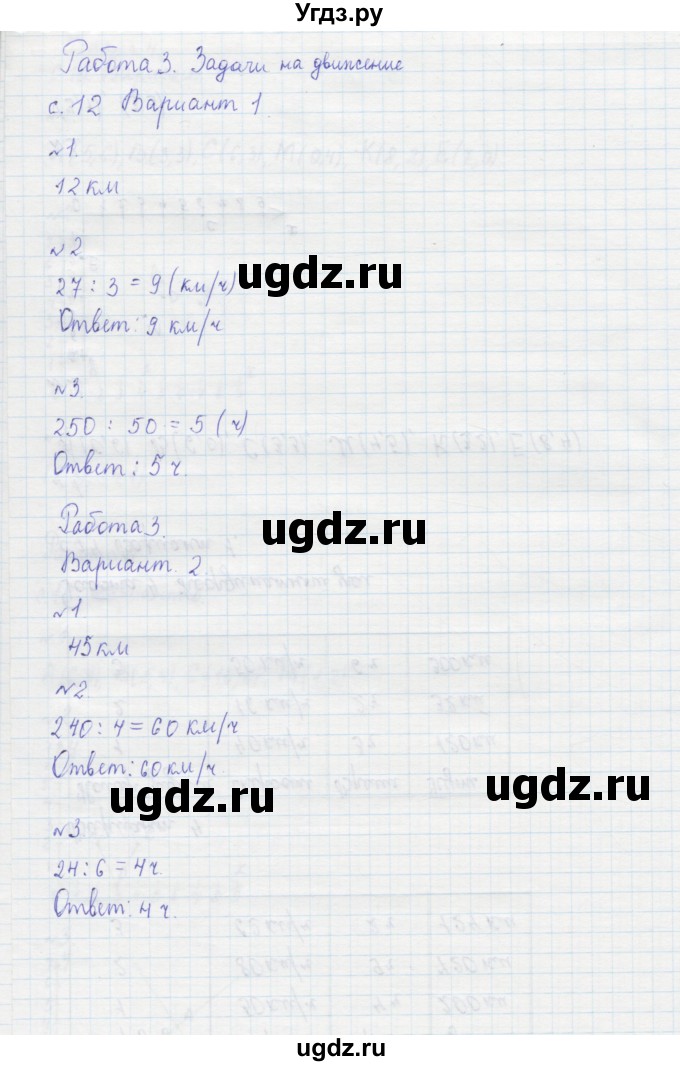 Угдз.ру
Работа 3. Задачи на движение
с. 12 Вариант 1
№1.
12 км
№2
27 : 3 = 9 (км/ч)
ugdz.ru
Ответ: 9 км/ч
№3.
250 : 50 = 5 (ч)
Ответ: 5 ч.
Работа 3.
ugdz.ru
Вариант 2.
№1
45 км
№2.
240 : 4 = 60 км/ч
Ответ: 60 км/ч
ugdz.ru
ugdz.ru
№3
24 : 6 = 4 ч.
Ответ: 4 ч.
ugdz.ru